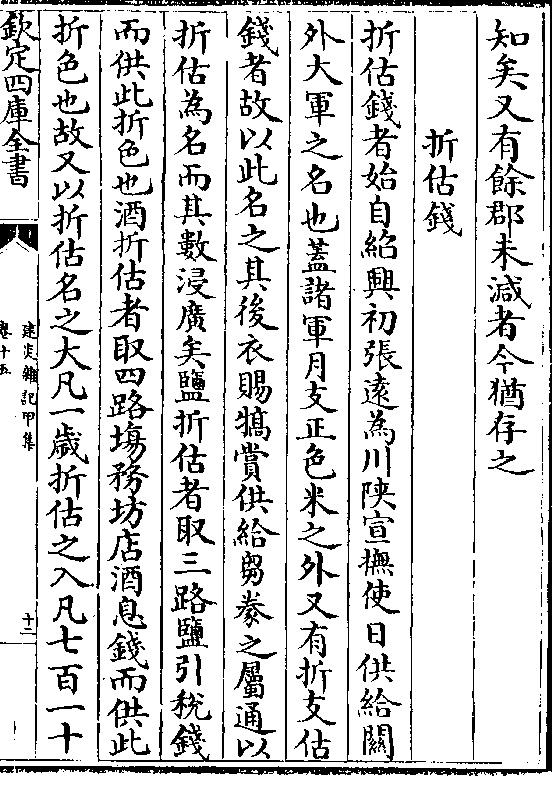 知矣又有餘郡未減者今猶存之
折估錢
折估錢者始自紹興初張遠為川陝宣撫使日供給關
外大軍之名也蓋諸軍月支正色米之外又有折支估
錢者故以此名之其後衣賜犒賞供給芻豢之屬通以
折估為名而其數浸廣矣鹽折估者取三路鹽引稅錢
而供此折色也酒折估者取四路塲務坊店酒息錢而供此
折色也故又以折估名之大凡一歲折估之入凡七百一十
欽定四庫全書
建炎雜記甲集
卷十五
十二